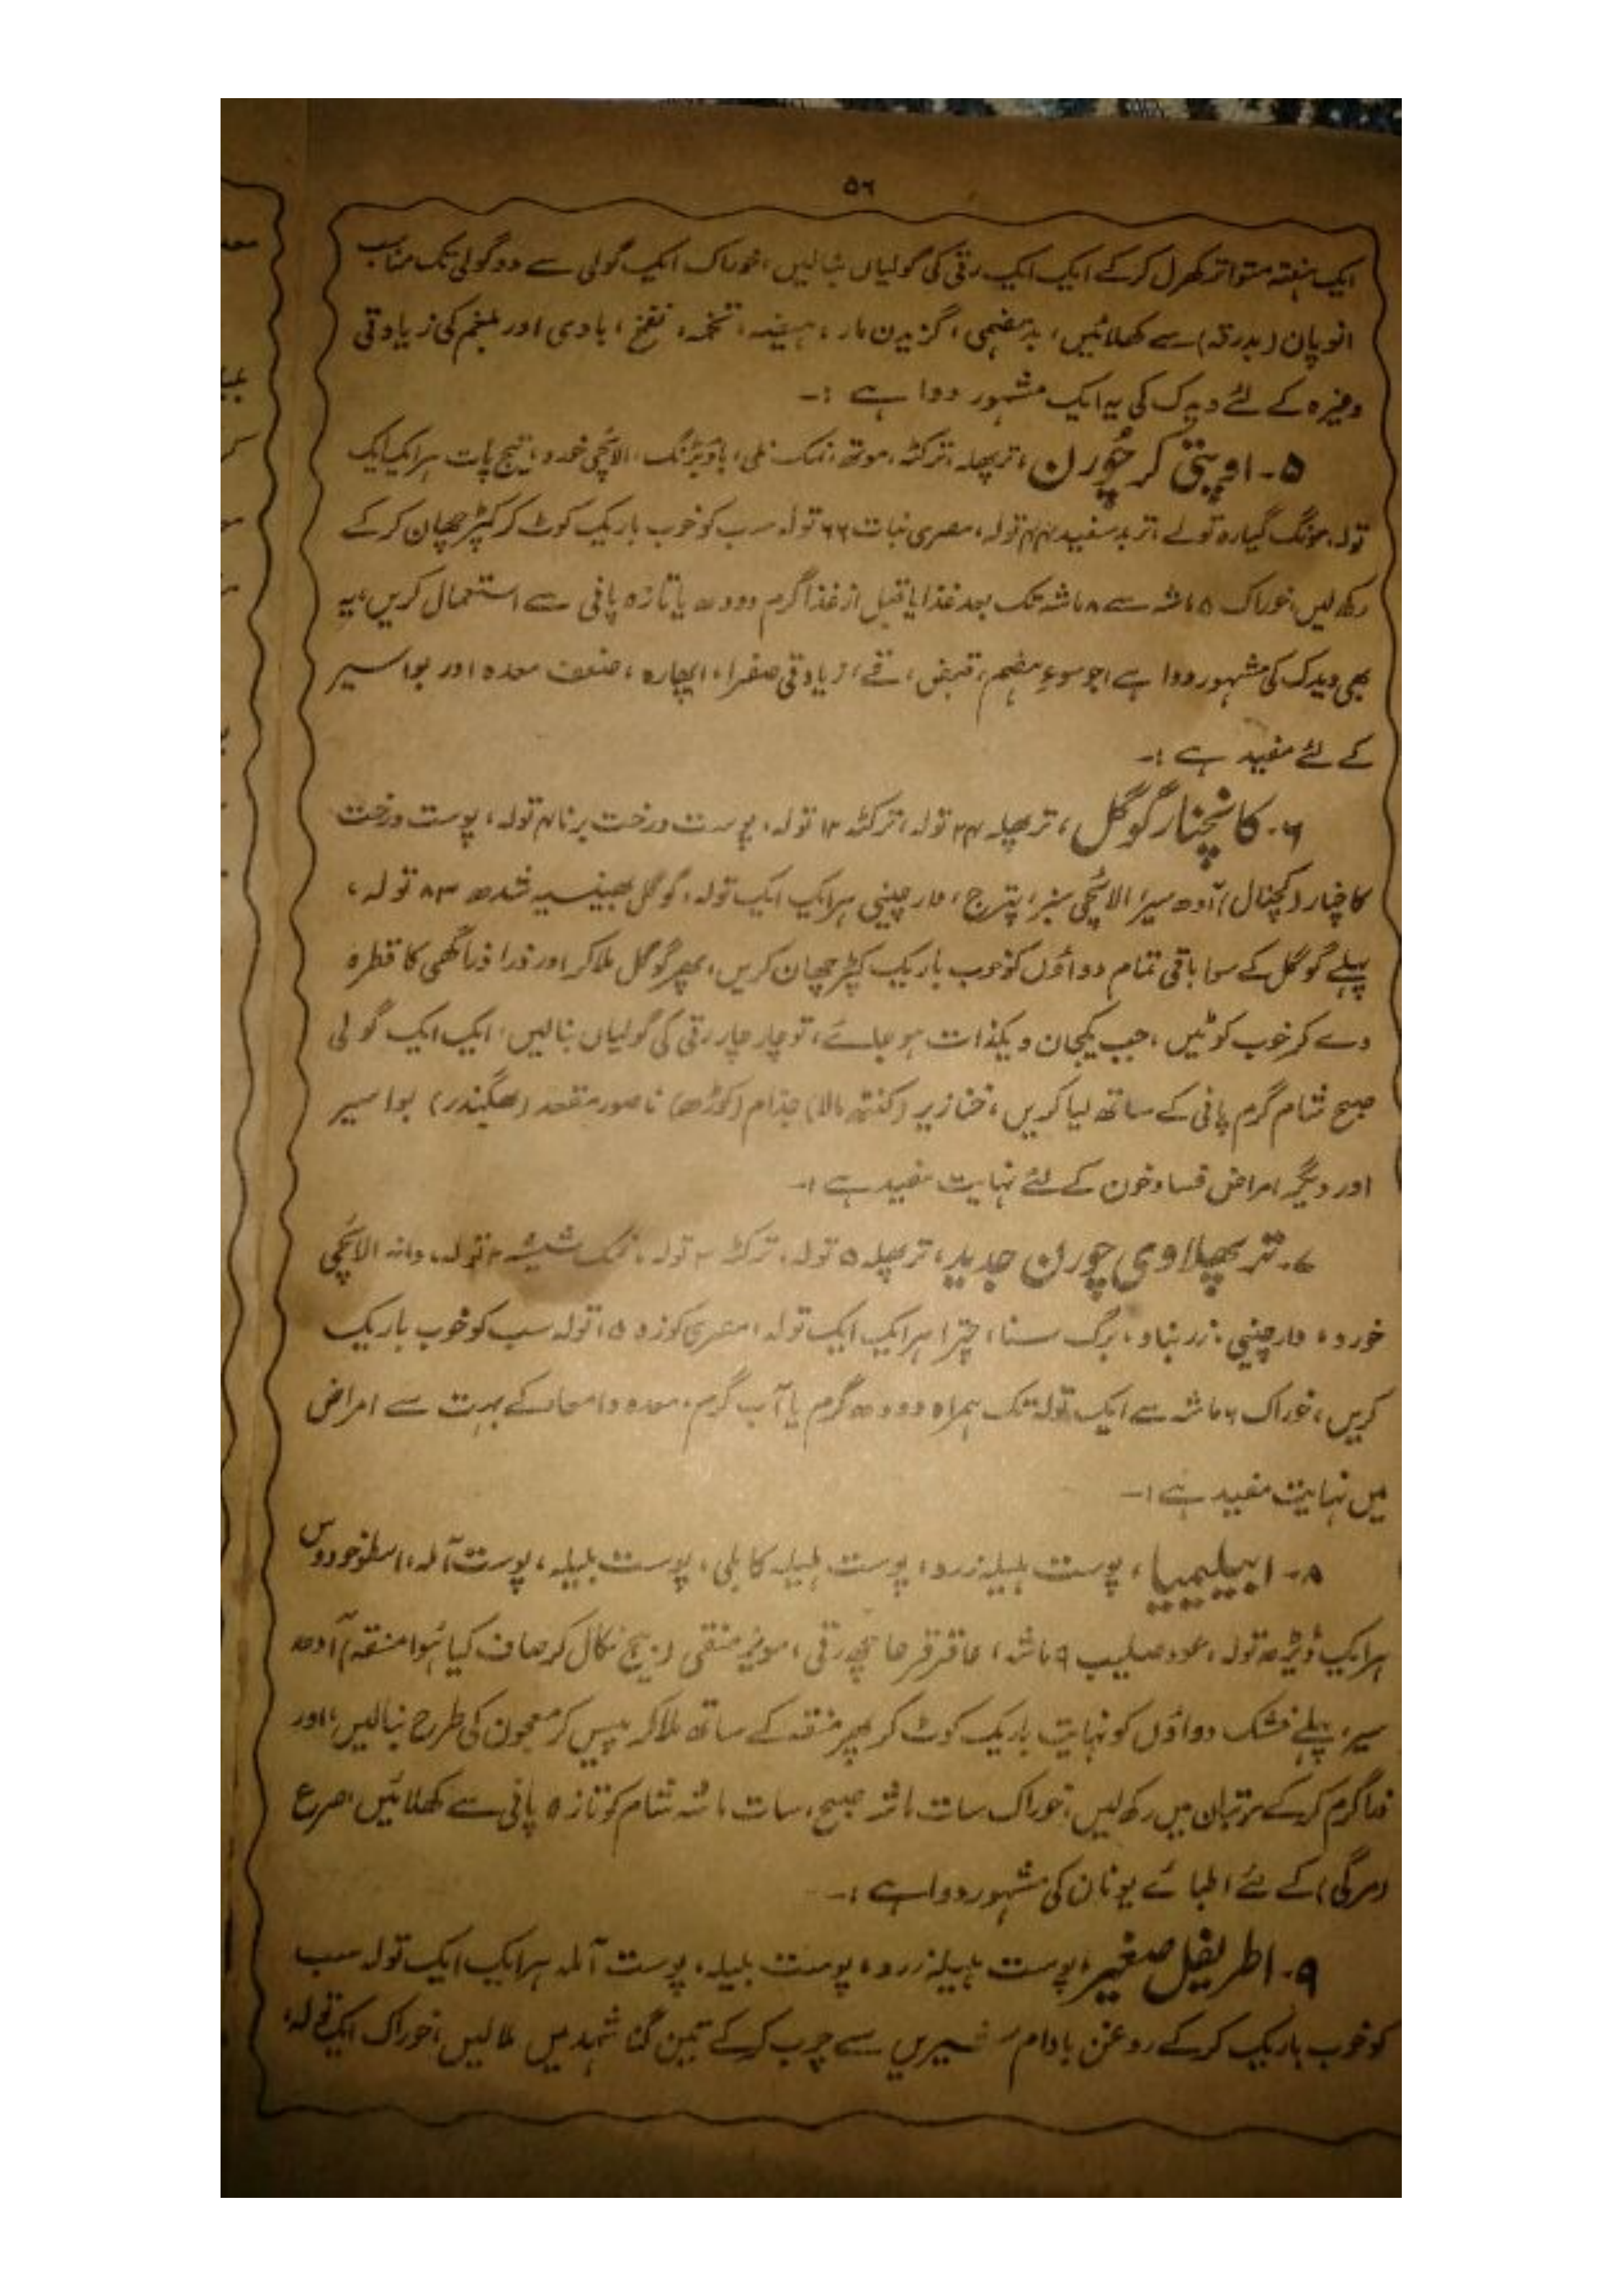 ۵۶
ایک ہفتہ متواتر کھرل کر کے ایک ایک رتی کی گولیاں بنالیں، خوراک ایک گولی سے دو گولی تک مناسب
انوپان (بدرقہ) سے کھلائیں، بدہضمی، گزیدن مار، ہیضہ، تخمہ، نفخ، بادی اور بلغم کی زیادتی
وغیرہ کے لئے ویدک کی یہ ایک مشہور دوا ہے :۔
۵۔ اوپتی کر چُورن، تریپھلہ، ترکٹہ، موتھ، نمک ، باؤبڑنگ، الائچی خورد، تیج پات ہر ایک ایک
تولہ، لونگ گیارہ تولے، تربد سفید ۴۴ تولہ، مصری نبات ۶۶ تولہ سب کو خوب باریک کوٹ کر کپڑ چھان کر کے
رکھ لیں، خوراک ۵ ماشہ سے ۸ ماشہ تک بعد غذا یا قبل از غذا گرم دودھ یا تازہ پانی سے استعمال کریں، یہ
بھی ویدک کی مشہور دوا ہے، جو سوءِ ہضم، قبض، قے، زیادتی صفرا، اپھارہ، ضعف معدہ اور بواسیر
کے لئے مفید ہے :۔
۶۔ کانچنار گوگل، تریپھلہ ۲۴ تولہ، ترکٹہ ۱۲ تولہ، پوست درخت برنا ۴ تولہ، پوست درخت
کاچنار (کچنال) آدھ سیر، الائچی سبز، پترج، دارچینی ہر ایک ایک تولہ، گوگل بھینسیہ شدھ ۸۳ تولہ،
پہلے گوگل کے سوا باقی تمام دواؤں کو خوب باریک کپڑ چھان کریں، پھر گوگل ملا کر اور ذرا ذرا گھی کا قطرہ
دے کر خوب کوٹیں، جب یکجان و یکذات ہو جائے، تو چار چار رتی کی گولیاں بنالیں، ایک ایک گولی
صبح شام گرم پانی کے ساتھ لیا کریں، خنازیر (کنٹھ مالا) جذام (کوڑھ) ناصور مقعد (بھگندر) بواسیر
اور دیگر امراض فساد خون کے لئے نہایت مفید ہے :۔
۷۔ تر پھلاوی چورن جدید، تریپھلہ ۵ تولہ، ترکٹہ ۳ تولہ، نمک شیشہ ۲ تولہ، دانہ الائچی
خورد، دارچینی، زرنباد، برگ سنا، چترا ہر ایک ایک تولہ، مصری کوزہ ۱۵ تولہ سب کو خوب باریک
کریں، خوراک ۶ ماشہ سے ایک تولہ تک ہمراہ دودھ گرم یا آب گرم، معدہ و امعاء کے بہت سے امراض
میں نہایت مفید ہے :۔
۸۔ ، پوست ہلیلہ زرد، پوست ہلیلہ کابلی، پوست بلیلہ، پوست آملہ، اسطوخودوس
ہر ایک ڈیڑھ تولہ، عود صلیب ۹ ماشہ، عاقرقرحا چھ رتی، مویز منقی (بیج نکال کر صاف کیا ہُوا منقہ) آدھ
سیر، پہلے خشک دواؤں کو نہایت باریک کوٹ کر پھر منقہ کے ساتھ ملا کر پیس کر معجون کی طرح بنالیں، اور
ذرا گرم کر کے مرتبان میں رکھ لیں، خوراک سات ماشہ صبح، سات ماشہ شام کو تازہ پانی سے کھلائیں، صرع
(مرگی) کے لئے اطبائے یونان کی مشہور دوا ہے :۔
۹۔ اطریفل صغیر، پوست ہلیلہ زرد، پوست بلیلہ، پوست آملہ ہر ایک ایک تولہ سب
کو خوب باریک کر کے روغن بادام شیریں سے چرب کر کے تین گنا شہد میں ملالیں، خوراک ایک تولہ،